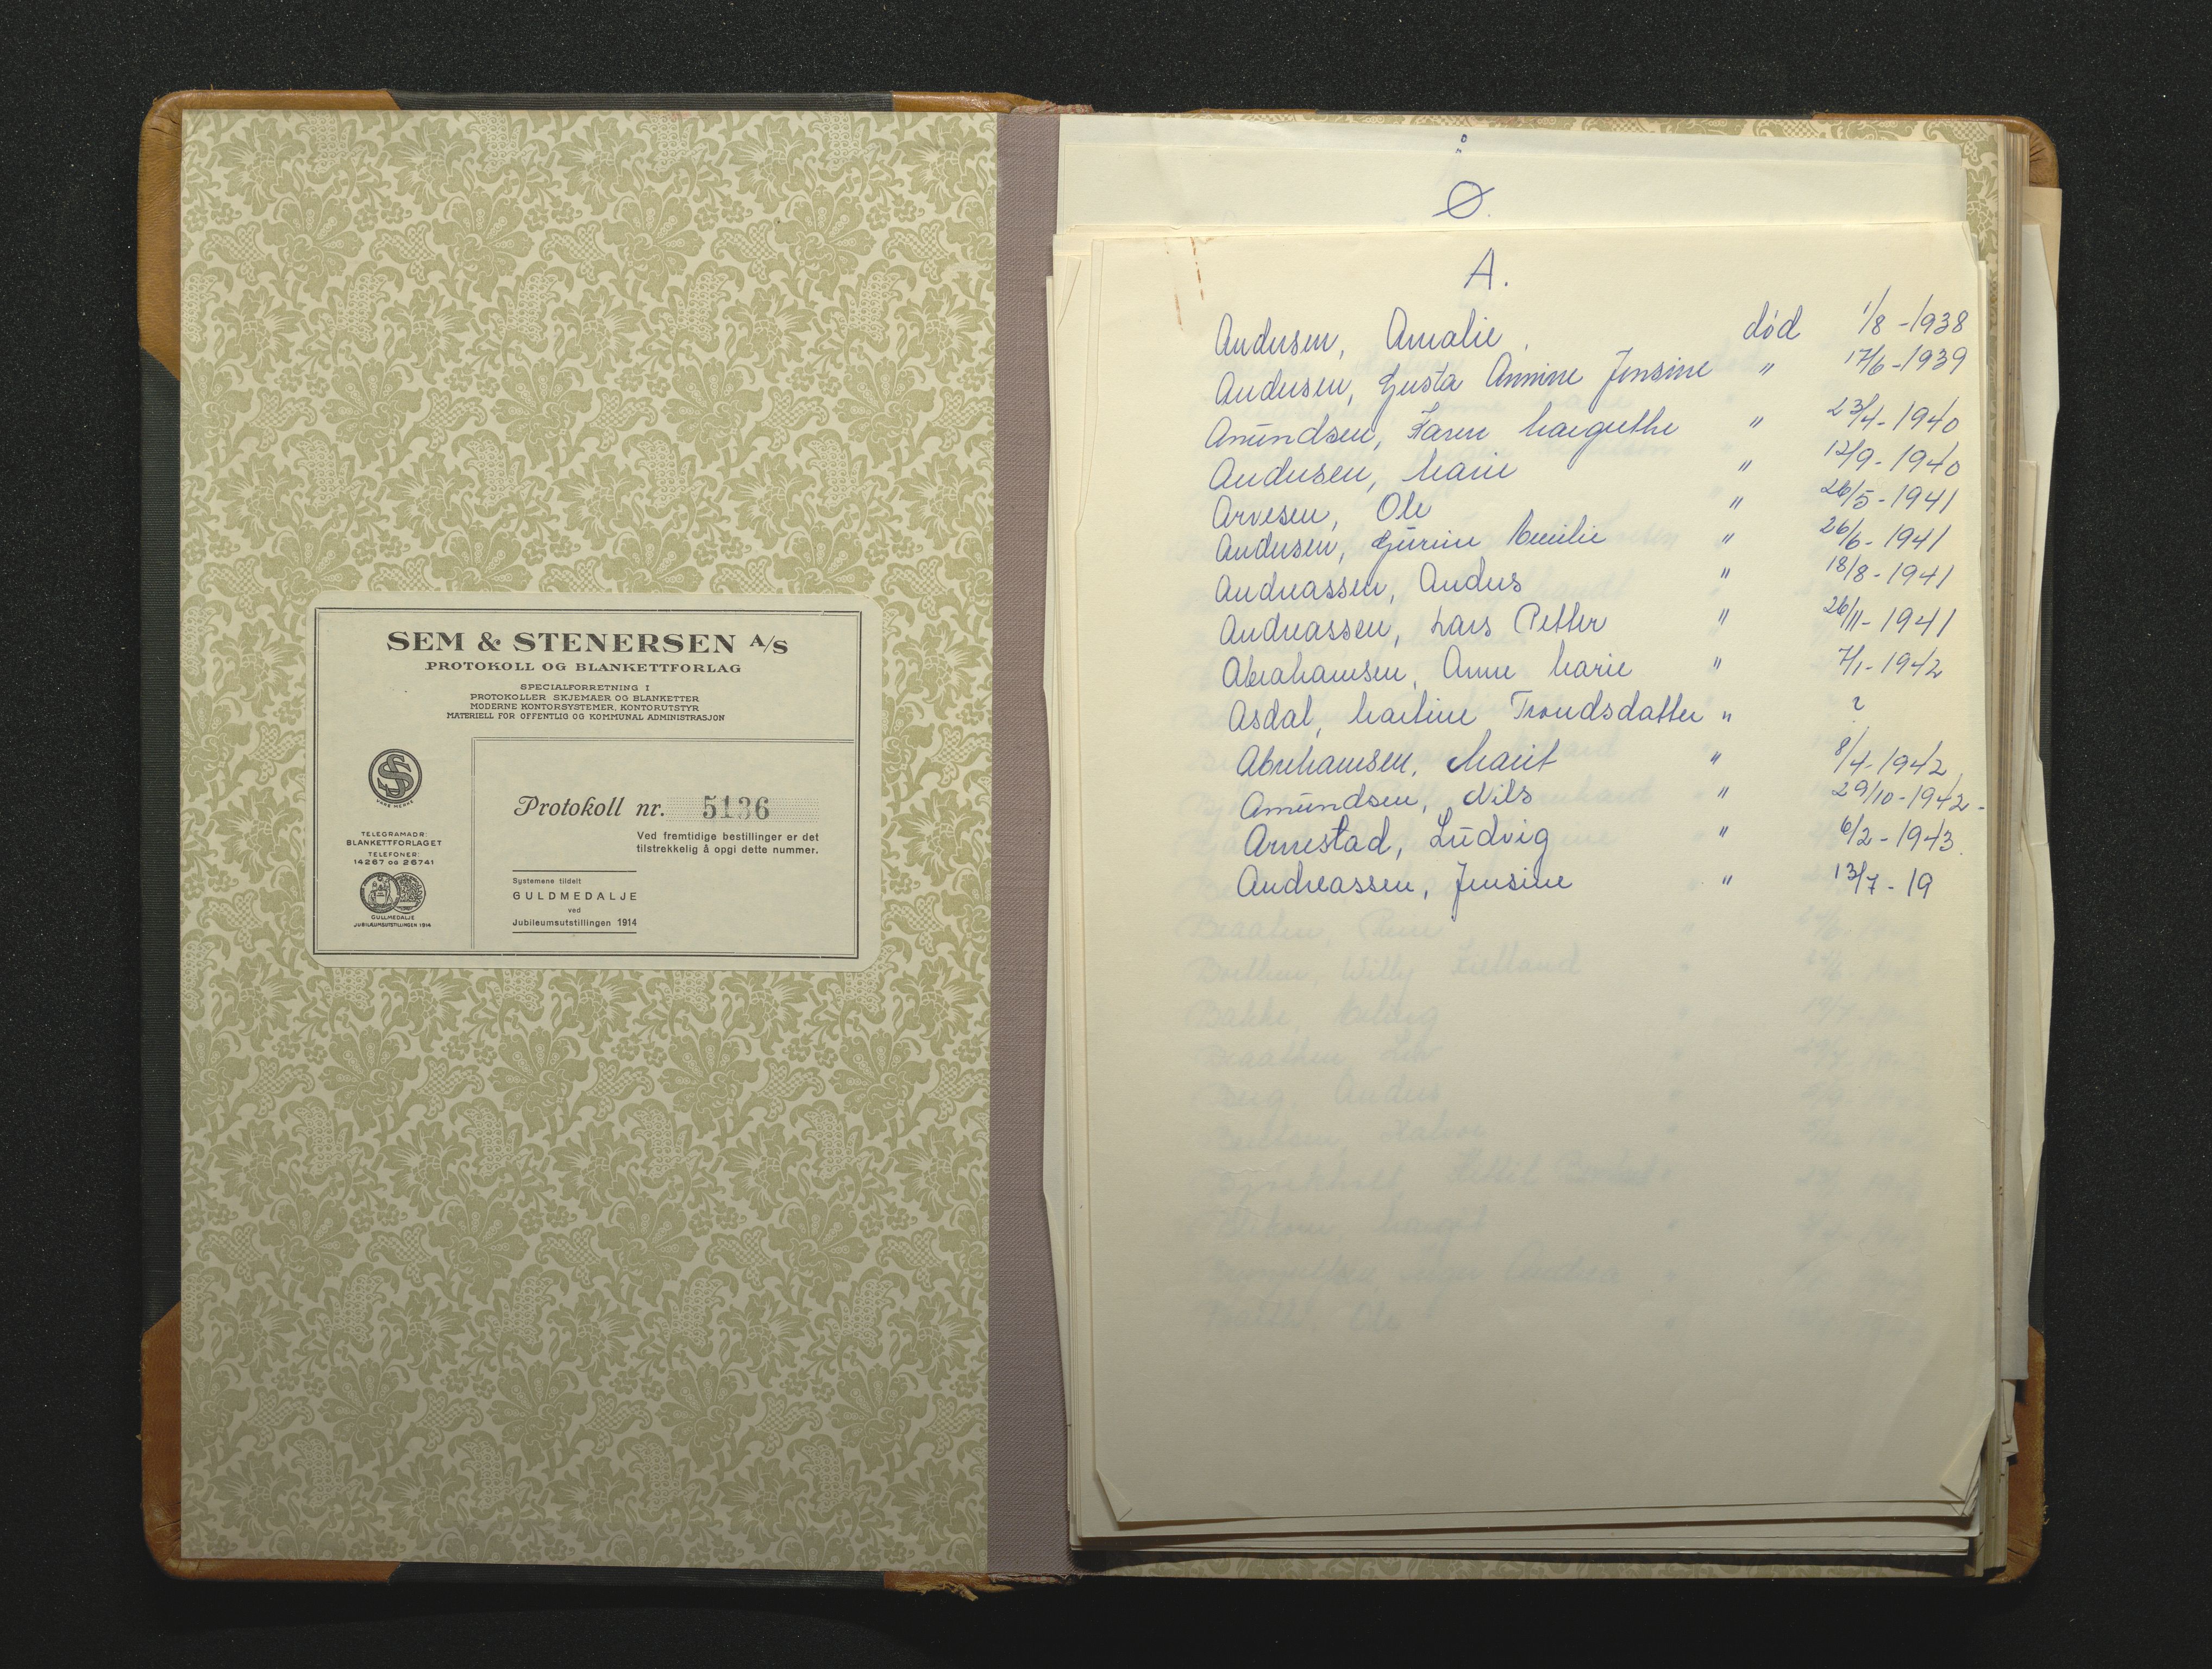 SEM & STENERSEN A/S
PROTOKOLL OG BLANKETTFORLAG
SPECIALFORRETNING I
PROTOKOLLER SKJEMAER OG BLANKETTER
MODERNE KONTORSYSTEMER, KONTORUTSTYR
MATERIELL FOR OFFENTLIG OG KOMMUNAL ADMINISTRASJON
SS
VARE MERKE
TELEGRAMADR:
BLANKETTFORLAGET
TELEFONER:
14267 OG 26741
GULLMEDALJE
JUBILEUMSUTSTILLINGEN 1914
Protokoll nr. 5136
Ved fremtidige bestillinger er det
tilstrekkelig å opgi dette nummer.
Systemene tildelt
GULDMEDALJE
ved
Jubileumsutstillingen 1914
Ø.
A.
Andersen, Amalie, død 1/8-1938
Andersen, Gusta Annine Jensine " 17/6-1939
Amundsen, Karen Margrethe " 23/4-1940
Andersen, Marie " 12/9-1940
Arvesen, Ole " 26/5-1941
Andersen, Gurine Emilie " 26/6-1941
Andreassen, Anders " 18/8-1941
Andreassen, Lars Petter " 26/11-1941
Abrahamsen, Anne Marie " 7/1-1942
Asdal, Martine Trondsdatter " ?
Abrahamsen, Marit " 8/4-1942
Amundsen, Nils " 29/10-1942-
Arnestad, Ludvig " 6/2-1943.
Andreassen, Jensine " 13/7-19